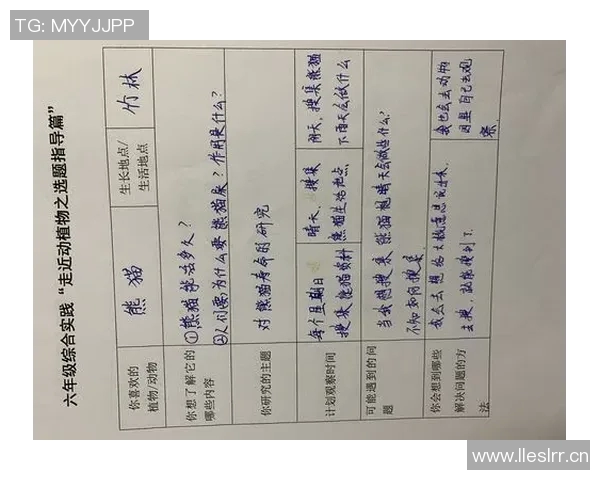 TG: MYYJJPP
六年级综合实践“走近动植物之选题指导篇”
你喜欢的
植物/动物
熊猫
生长地点/
生活地点
竹林
你想了解它的
哪些内容
①熊猫能活多久?
②人们要为什么要熊猫来?作用是什么?
你研究的主题
对熊猫寿命的研究
计划观察时间
每个星期日
搜集熊猫资料
晴天,搜集
熊猫生活地点
阴天,搜集熊猫
下雨天会做什么
可能遇到的问
题
当我想搜集熊猫晴天会做些什么,
不知如何搜集
你会想到哪些
解决问题的方
法
我会去想给大概意思说进来,
去搜,就能搜到了.
我也会去动物
园里自己去观
察.
www.lleslrr.cn.cn